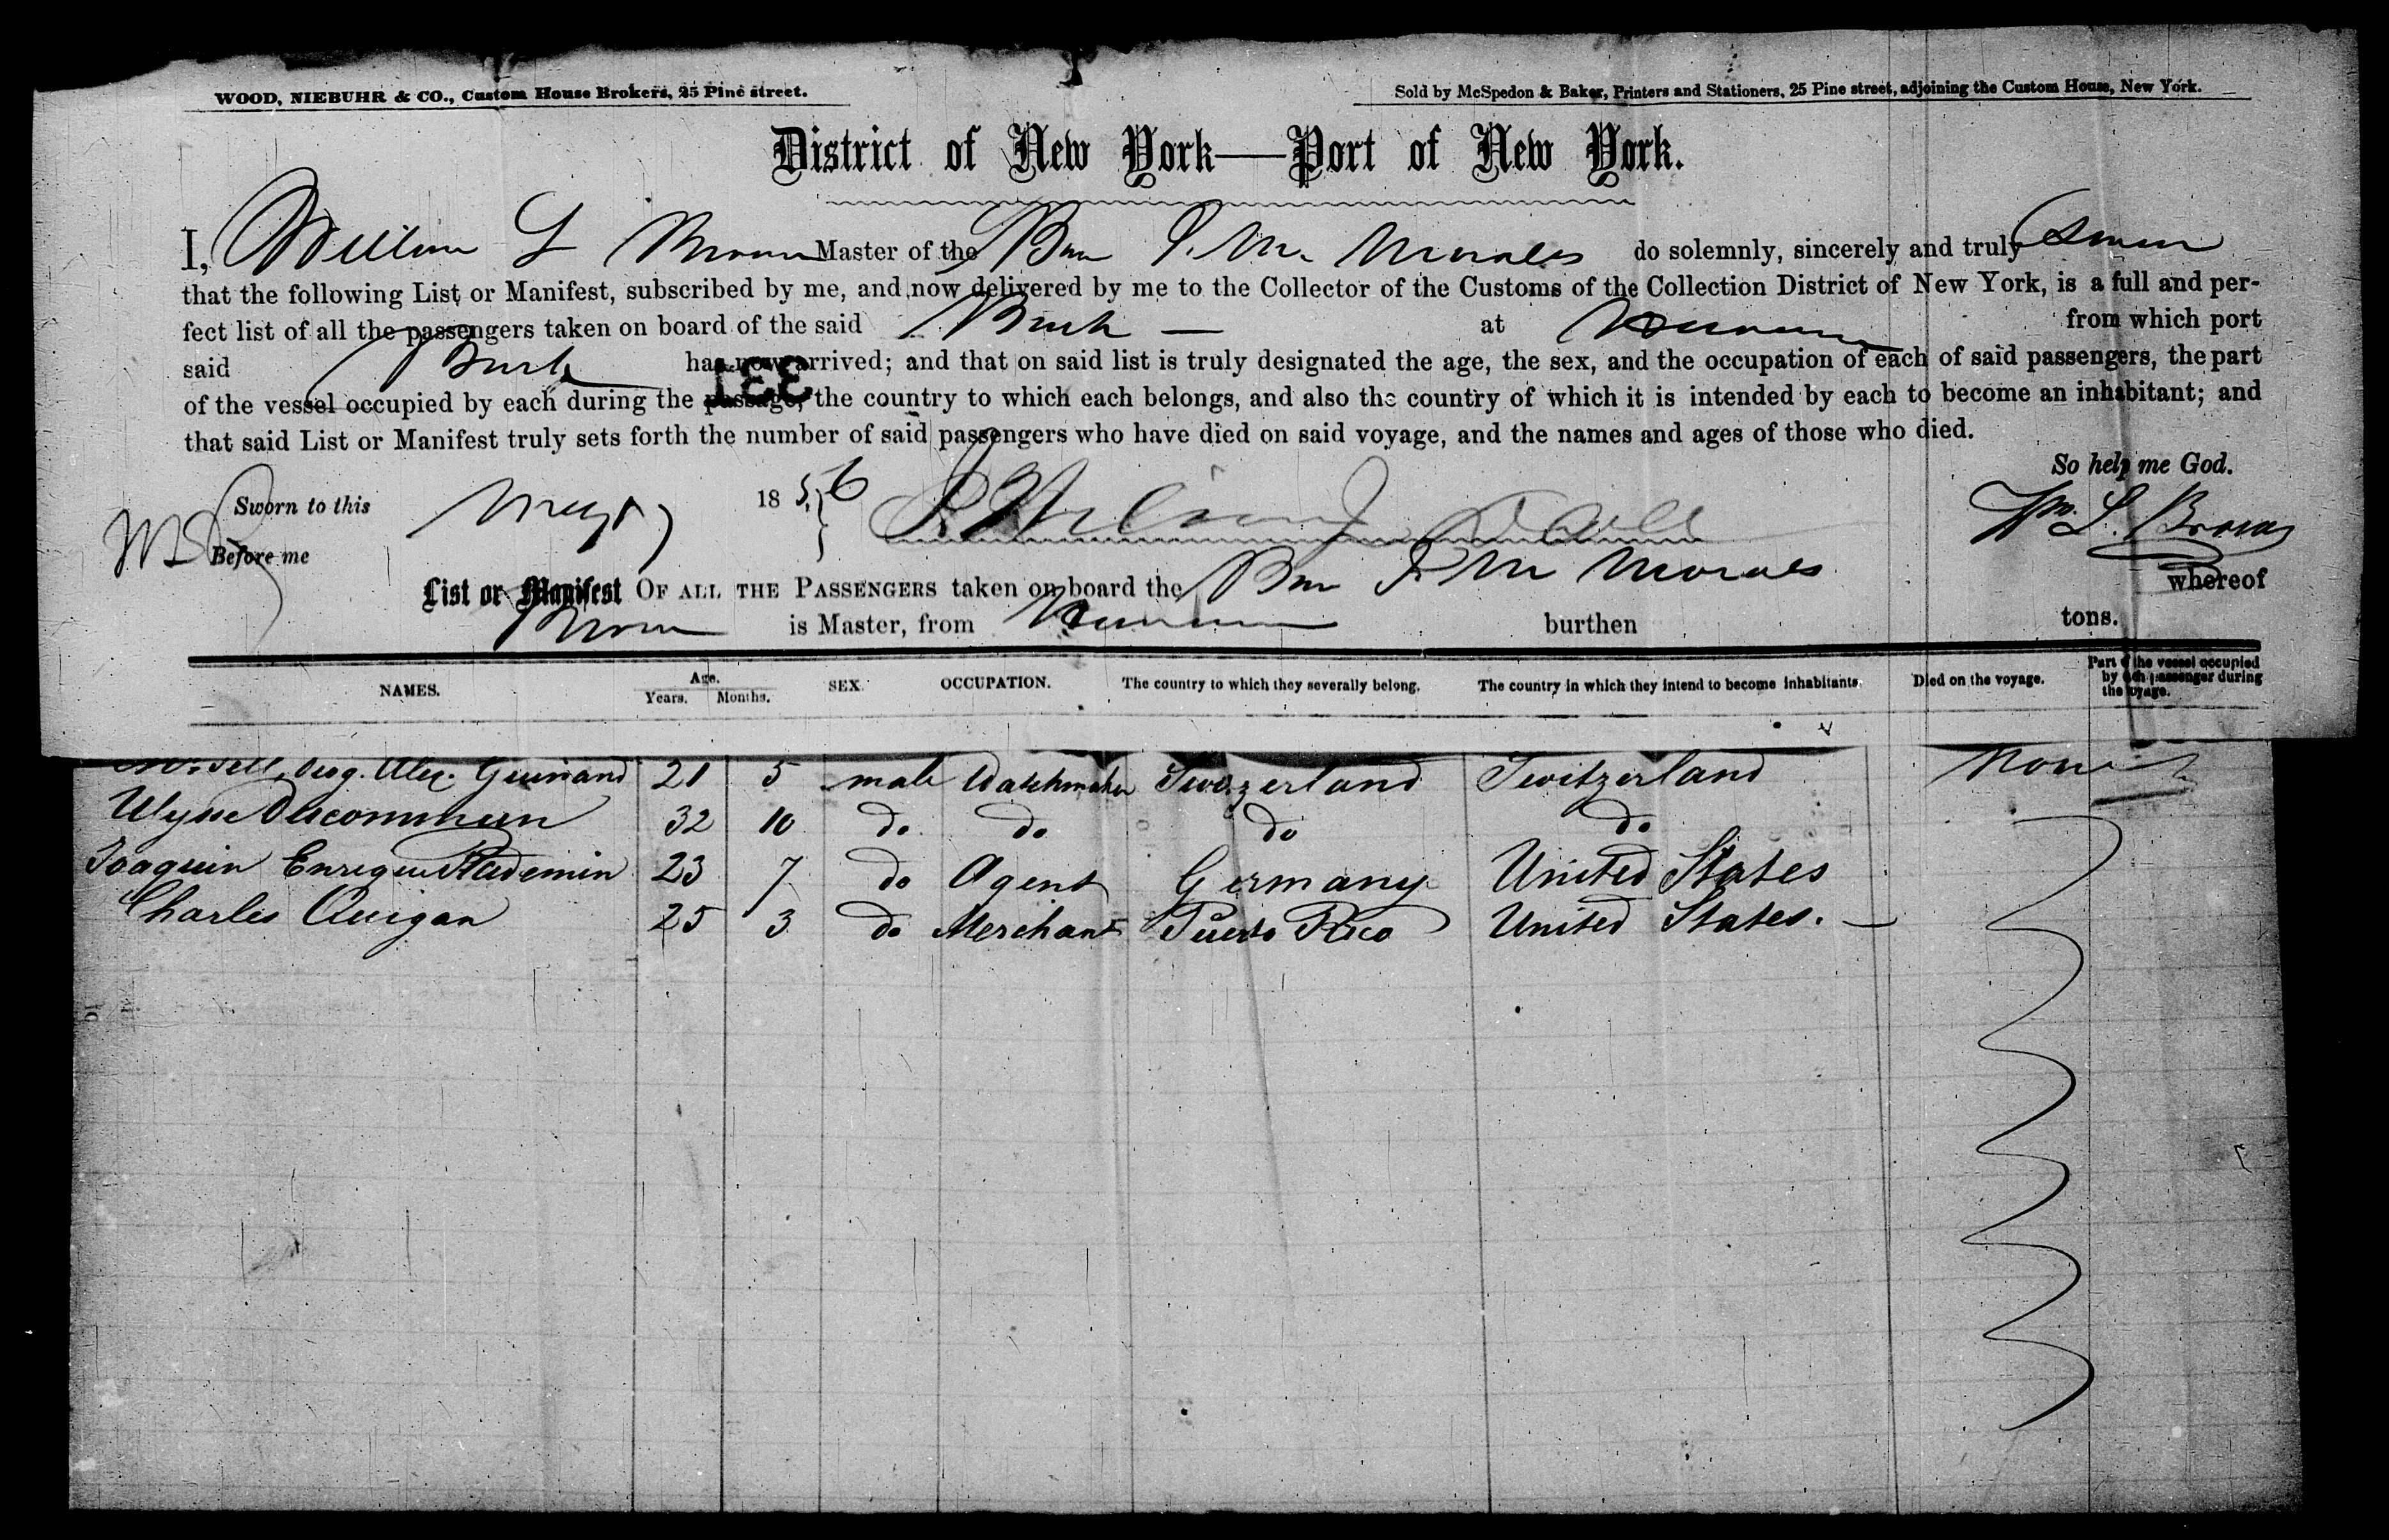 WOOD, NIEBUHR & CO., Custom House Brokers, 25 Pine street.
Sold by McSpedon & Baker, Printers and Stationers, 25 Pine street, adjoining the Custom House, New York.
District of New York—Port of New York.
I, William L Brown Master of the P. M. Morales do solemnly, sincerely and truly Swear
that the following List or Manifest, subscribed by me, and now delivered by me to the Collector of the Customs of the Collection District of New York, is a full and per-
fect list of all the passengers taken on board of the said Bark — at from which port
said Bark has now arrived; and that on said list is truly designated the age, the sex, and the occupation of each of said passengers, the part
331
of the vessel occupied by each during the passage, the country to which each belongs, and also the country of which it is intended by each to become an inhabitant; and
that said List or Manifest truly sets forth the number of said passengers who have died on said voyage, and the names and ages of those who died.
So help me God.
Sworn to this May 1856
Wm. L. Brown
Before me
List or Manifest OF ALL THE PASSENGERS taken on board the P M Morales whereof
Brown is Master, from burthen tons.
NAMES. Age. Years. Months. SEX. OCCUPATION. The country to which they severally belong. The country in which they intend to become inhabitants. Died on the voyage. Part of the vessel occupied by each passenger during the voyage.
Guinand 21 5 male Watchmaker Switzerland Switzerland None
Ulysse Ducommun 32 10 do do do do
Joaquin Enrique 23 7 do Agent Germany United States
Charles Quigan 25 3 do Merchant Puerto Rico United States. —